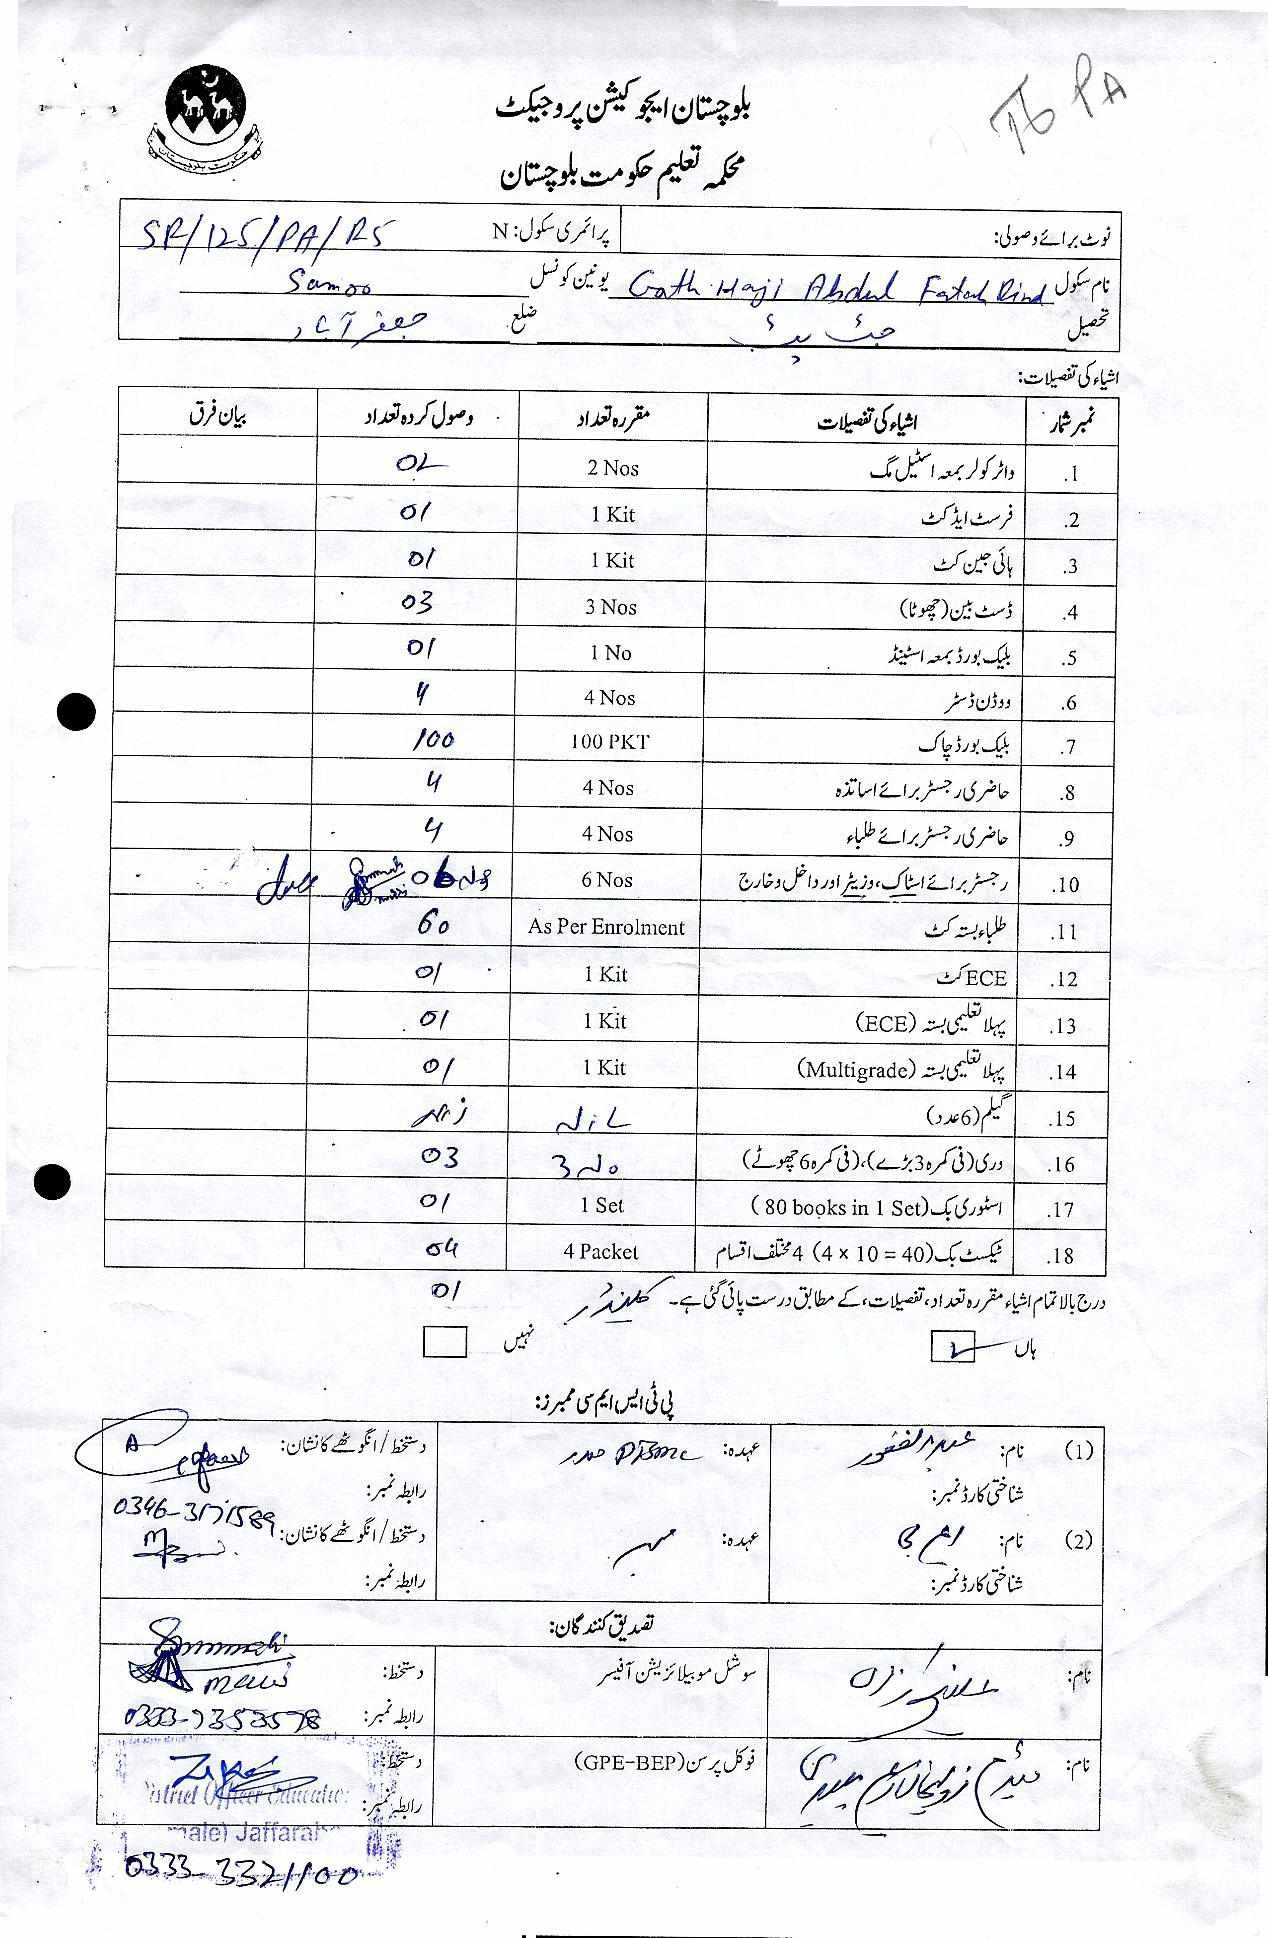 بلوچستان ایجوکیشن پروجیکٹ
محکمہ تعلیم حکومت بلوچستان
نوٹ برائے وصولی: پرائمری سکول: N SR/125/PA/RS
نام سکول Goth Haji Abdul Fatah Rind یونین کونسل Samoo
تحصیل جھٹ پٹ ضلع جعفر آباد
اشیاء کی تفصیلات:
نمبر شمار اشیاء کی تفصیلات مقررہ تعداد وصول کردہ تعداد بیان فرق
1. واٹر کولر بمعہ اسٹیل مگ 2 Nos 02
2. فرسٹ ایڈ کٹ 1 Kit 01
3. ہائی جین کٹ 1 Kit 01
4. ڈسٹ بین (چھوٹا) 3 Nos 03
5. بلیک بورڈ بمعہ اسٹینڈ 1 No 01
6. ووڈن ڈسٹر 4 Nos 4
7. بلیک بورڈ چاک 100 PKT 100
8. حاضری رجسٹر برائے اساتذہ 4 Nos 4
9. حاضری رجسٹر برائے طلباء 4 Nos 4
10. رجسٹر برائے اسٹاک، وزیٹر اور داخل و خارج 6 Nos 06 Nos
11. طلباء بستہ کٹ As Per Enrolment 60
12. ECE کٹ 1 Kit 01
13. پہلا تعلیمی بستہ (ECE) 1 Kit 01
14. پہلا تعلیمی بستہ (Multigrade) 1 Kit 01
15. گیلم (6 عدد) NiL
16. دری (فی کمرہ 3 بڑے)، (فی کمرہ 6 چھوٹے) 3 No 03
17. اسٹوری بک (80 books in 1 Set) 1 Set 01
18. ٹیکسٹ بک (4 × 10 = 40) 4 مختلف اقسام 4 Packet 04
درج بالا تمام اشیاء مقررہ تعداد، تفصیلات، کے مطابق درست پائی گئی ہے۔ کلینڈر 01
ہاں نہیں
پی ٹی ایس ایم سی ممبرز:
(1) نام: عبدالغفور عہدہ: صدر PTSMC دستخط/انگوٹھے کا نشان:
شناختی کارڈ نمبر: رابطہ نمبر: 0346-3171589
(2) نام: عہدہ: ممبر دستخط/انگوٹھے کا نشان:
شناختی کارڈ نمبر: رابطہ نمبر:
تصدیق کنندگان:
نام: سوشل موبیلائزیشن آفیسر دستخط:
رابطہ نمبر: 0333-7353578
نام: فوکل پرسن (GPE-BEP) دستخط:
رابطہ نمبر:
District Officer Education
(male) Jaffarabad
0333-3321100